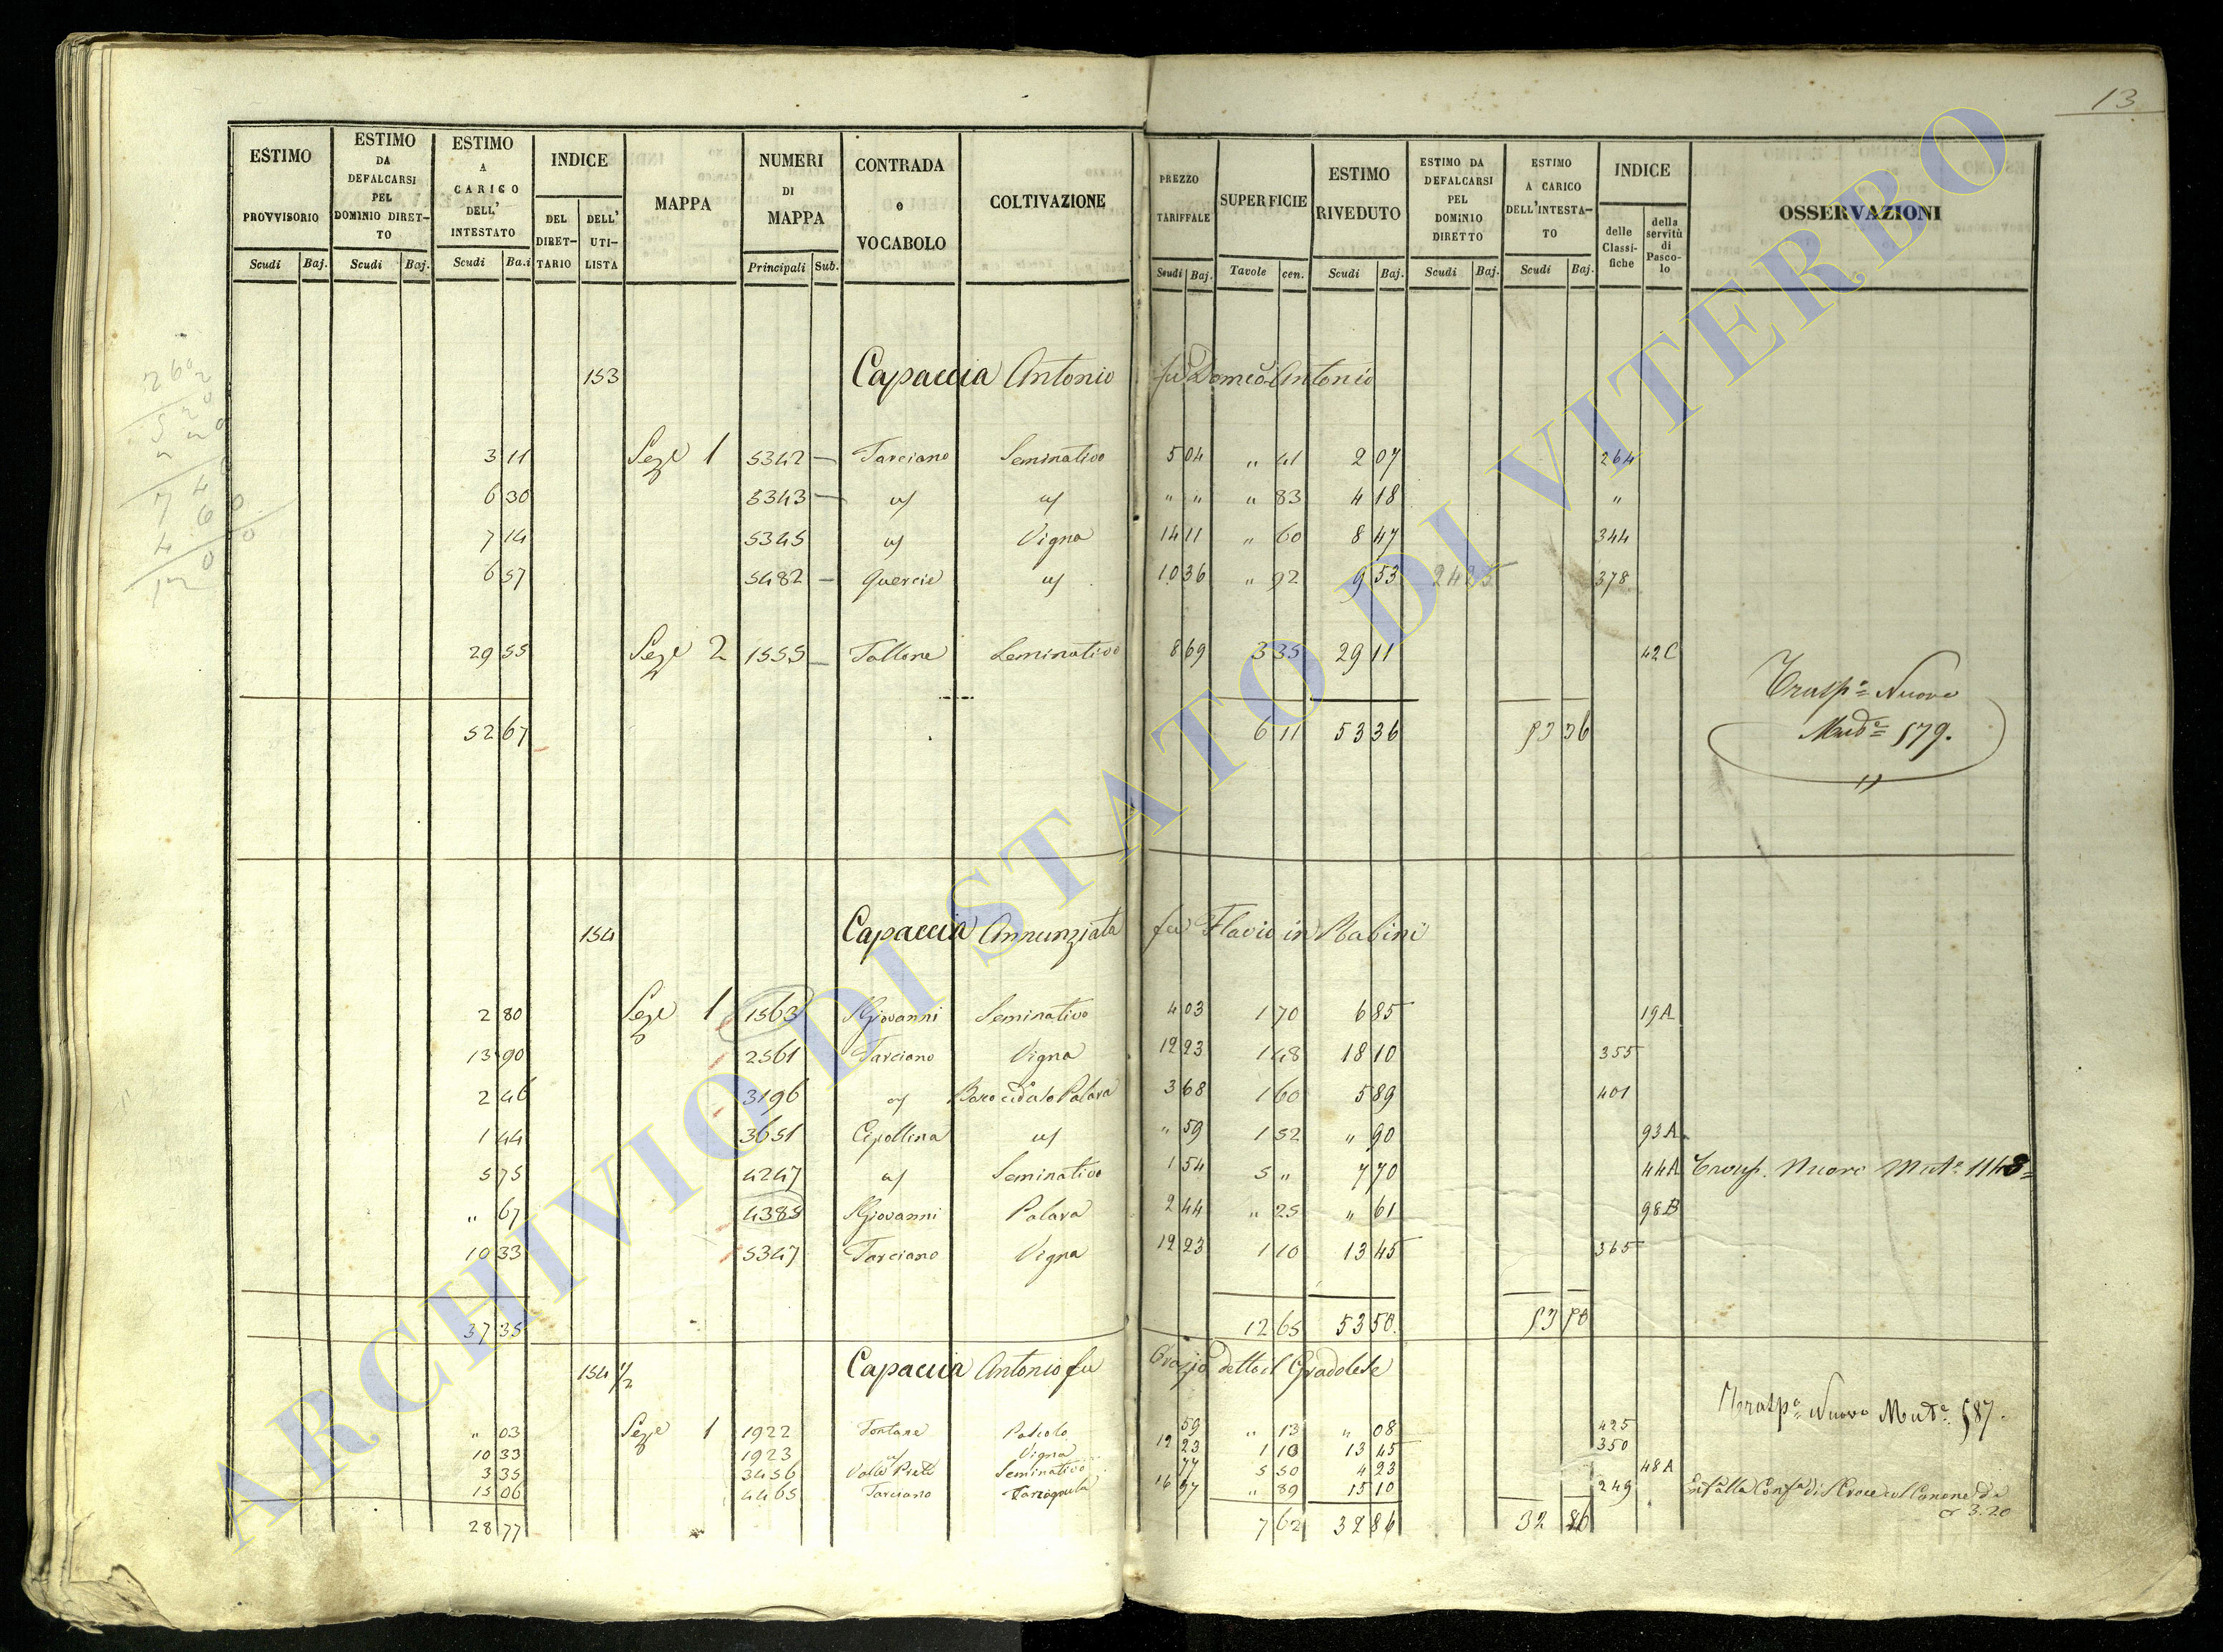 13
ESTIMO PROVVISORIO Scudi Baj.
ESTIMO DA DEFALCARSI PEL DOMINIO DIRETTO Scudi Baj.
ESTIMO A CARICO DELL' INTESTATO Scudi Ba.i
INDICE DEL DIRETTARIO DELL' UTILISTA
MAPPA
NUMERI DI MAPPA Principali Sub.
CONTRADA o VOCABOLO
COLTIVAZIONE
PREZZO TARIFFALE Scudi Baj.
SUPERFICIE Tavole cen.
ESTIMO RIVEDUTO Scudi Baj.
ESTIMO DA DEFALCARSI PEL DOMINIO DIRETTO Scudi Baj.
ESTIMO A CARICO DELL'INTESTATO Scudi Baj.
INDICE delle Classifiche della servitù di Pascolo
OSSERVAZIONI
153 Capaccia Antonio fu Domco Antonio
3 11 Seze 1 5342 — Tarciano Seminativo 5 04 " 41 2 07 264
6 30 5343 — " 83 4 18 "
7 14 5345 Vigna 14 11 " 60 8 47 344
6 57 5482 — Quercie 10 36 " 92 9 53 24 25 378
29 55 Seze 2 1555 — Tallone Seminativo 8 69 3 35 29 11 42 C
Trasp.o Nuovo
52 67 6 11 53 36 53 36 Mud.e 579.
154 Capaccia Annunziata fu Flavio in Rabini
2 80 Seze 1 1563 S Giovanni Seminativo 4 03 1 70 6 85 19 A
13 90 2561 Tarciano Vigna 12 23 1 48 18 10 355
2 46 3196 Bosco ceduo Palara 3 68 1 60 5 89 401
1 44 3651 Cipollina " 59 1 52 " 90 93 A
5 75 4247 Seminativo 1 54 5 " 7 70 44 A Trasp. Nuovo Mut.e 1148
" 67 4385 S Giovanni Palara 2 44 " 25 " 61 98 B
10 33 5347 Tarciano Vigna 12 23 1 10 13 45 365
37 35 12 65 53 50 53 50
154 1/2 Capaccia Antonio fu Orazio detto il Gradolese
Trasp.o Nuovo Mut.e 587.
" 03 Seze 1 1922 Fontane Pascolo 59 " 13 " 08 425
10 33 1923 Vigna 12 23 1 10 13 45 350
3 35 3456 Valle Seminativo 77 5 50 4 23 48 A
15 06 4465 Tarciano 16 97 " 89 15 10 249
3.20
28 77 7 62 32 86 32 86
ARCHIVIO DI STATO DI VITERBO